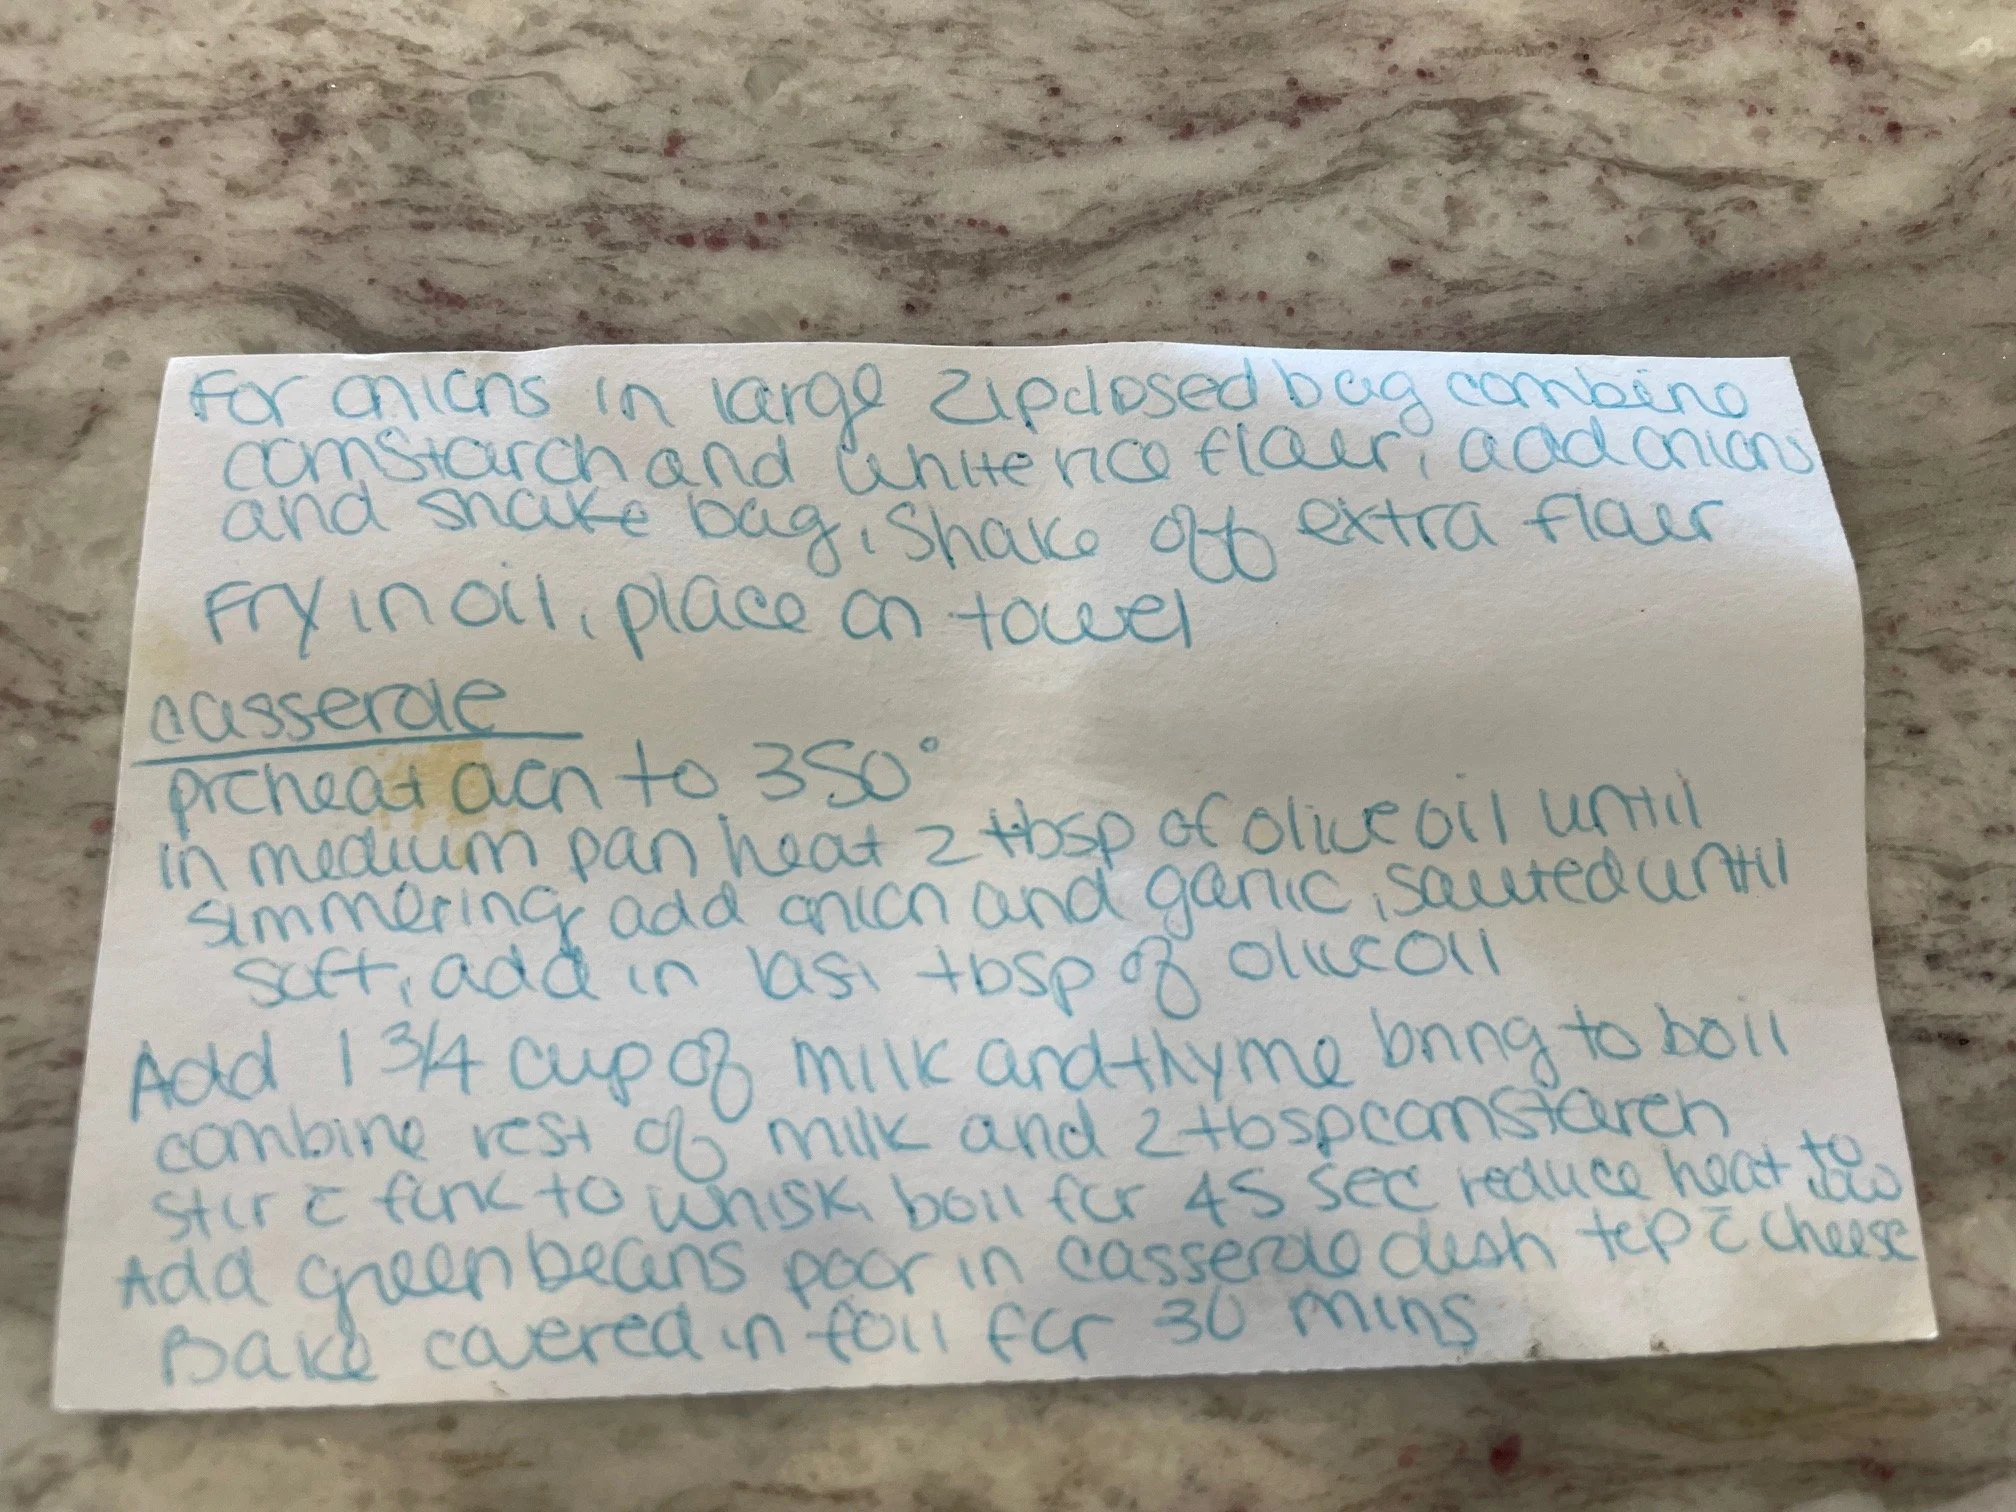 For onions in large zipclosed bag combine
cornstarch and white rice flauer, add onions
and shake bag, shake off extra flauer
Fry in oil, place on towel
casserole
preheat oven to 350°
in medium pan heat 2 tbsp of olive oil until
simmering add onion and garlic, sauted until
soft, add in last tbsp of olive oil
Add 1 3/4 cup of milk and thyme bring to boil
combine rest of milk and 2 tbsp cornstarch
stir c̄ fork to whisk, boil for 45 sec reduce heat to low
Add green beans poor in casserole dish top c̄ cheese
Bake covered in foil for 30 mins